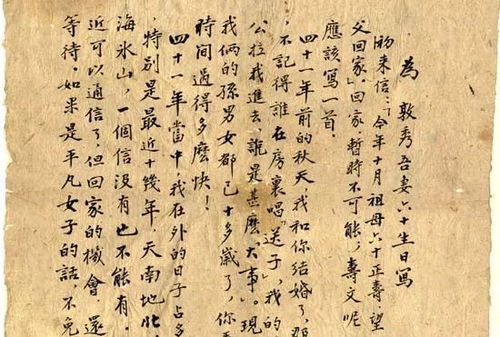 為 敦秀吾妻六十生日寫
来信:「今年十月祖母六十正壽,望
父回家」。回家,暫時不可能,壽文呢
應該寫一首。
四十一年前的秋天,我和你結婚了,
不記得誰在房裏唱“送子”,我的
公拉我進去,說是甚麼大事。現
我倆的孫男女都已十多歲了,你
時間過得多麽快!
四十一年當中,我在外的日子占多
特别是最近十幾年,天南地北,
海氷山,一個信没有也不能有。
近可以通信了,但回家的機會,還
等待。如果是平凡女子的話,不免